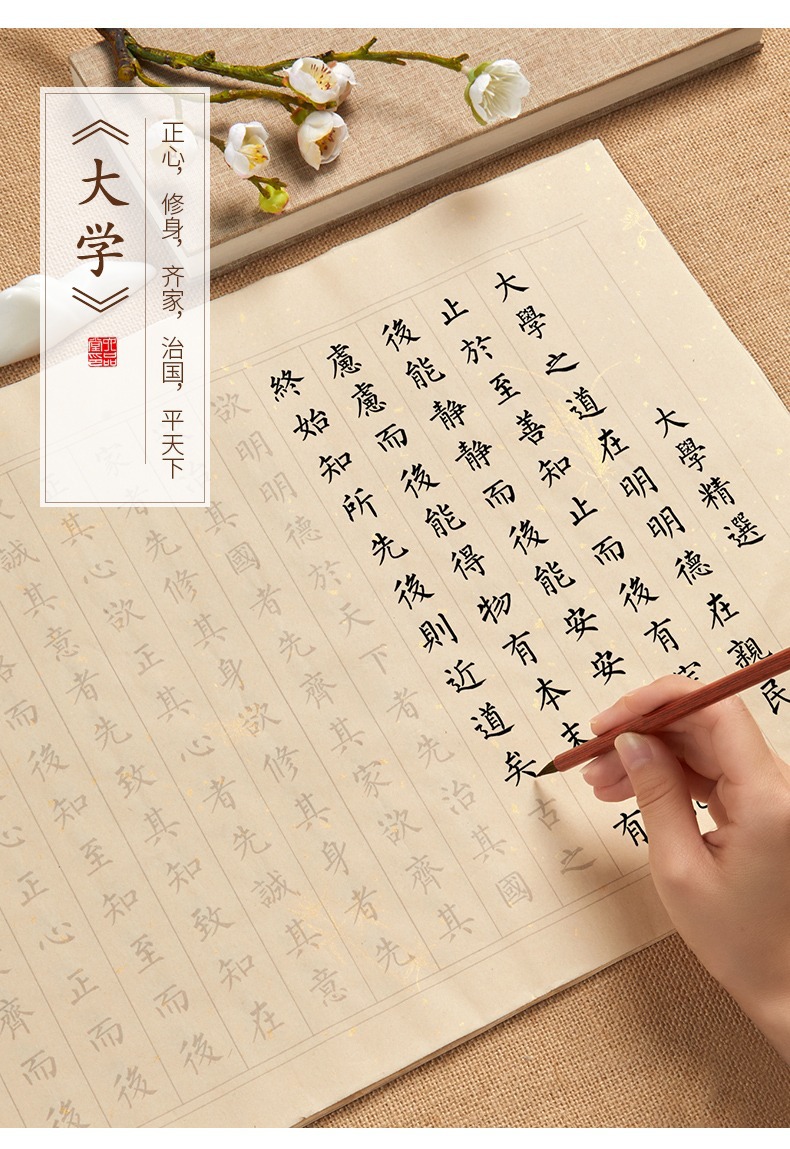 《大学》
正心，修身，齐家，治国，平天下
六品堂印
大學精選
大學之道在明明德在親民
止於至善知止而後有
後能静静而後能安安
慮慮而後能得物有本末有
終始知所先後則近道矣古之
欲明明德於天下者先治其國
其國者先齊其家欲齊其
者先修其身欲修其身者先
其心欲正其心者先誠其意
誠其意者先致其知致知在
而後知至知至而後
心正心正而後
齊而後